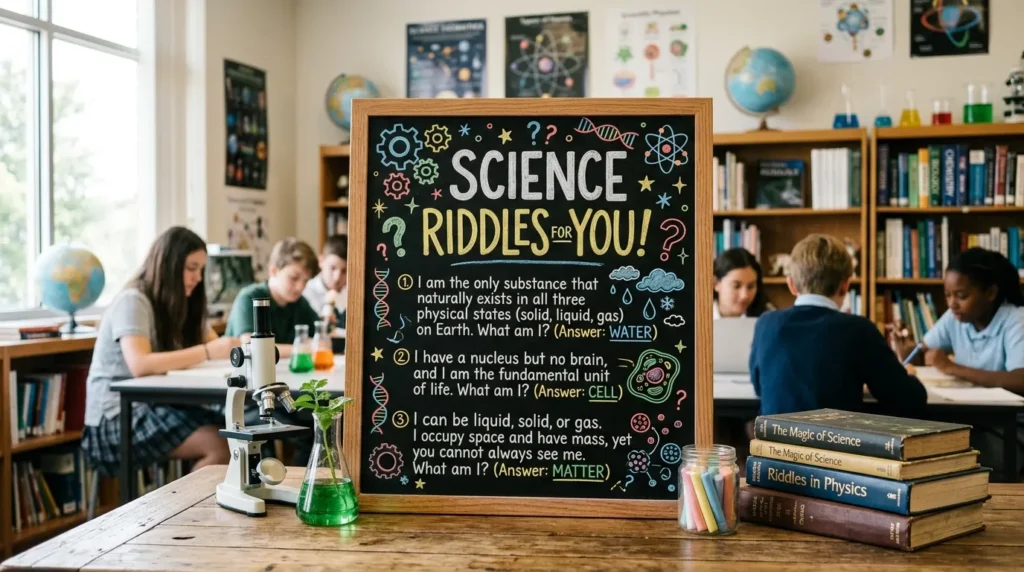 SCIENCE
RIDDLES FOR YOU!
1. I am the only substance that
naturally exists in all three
physical states (solid, liquid, gas)
on Earth. What am I? (Answer: WATER)
2 I have a nucleus but no brain,
and I am the fundamental unit
of life. What am I? (Answer: CELL)
3 I can be liquid, solid, or gas.
I occupy space and have mass, yet
you cannot always see me.
What am I? (Answer: MATTER)
The Magic of Science
The Magic of Science
Riddles in Physics